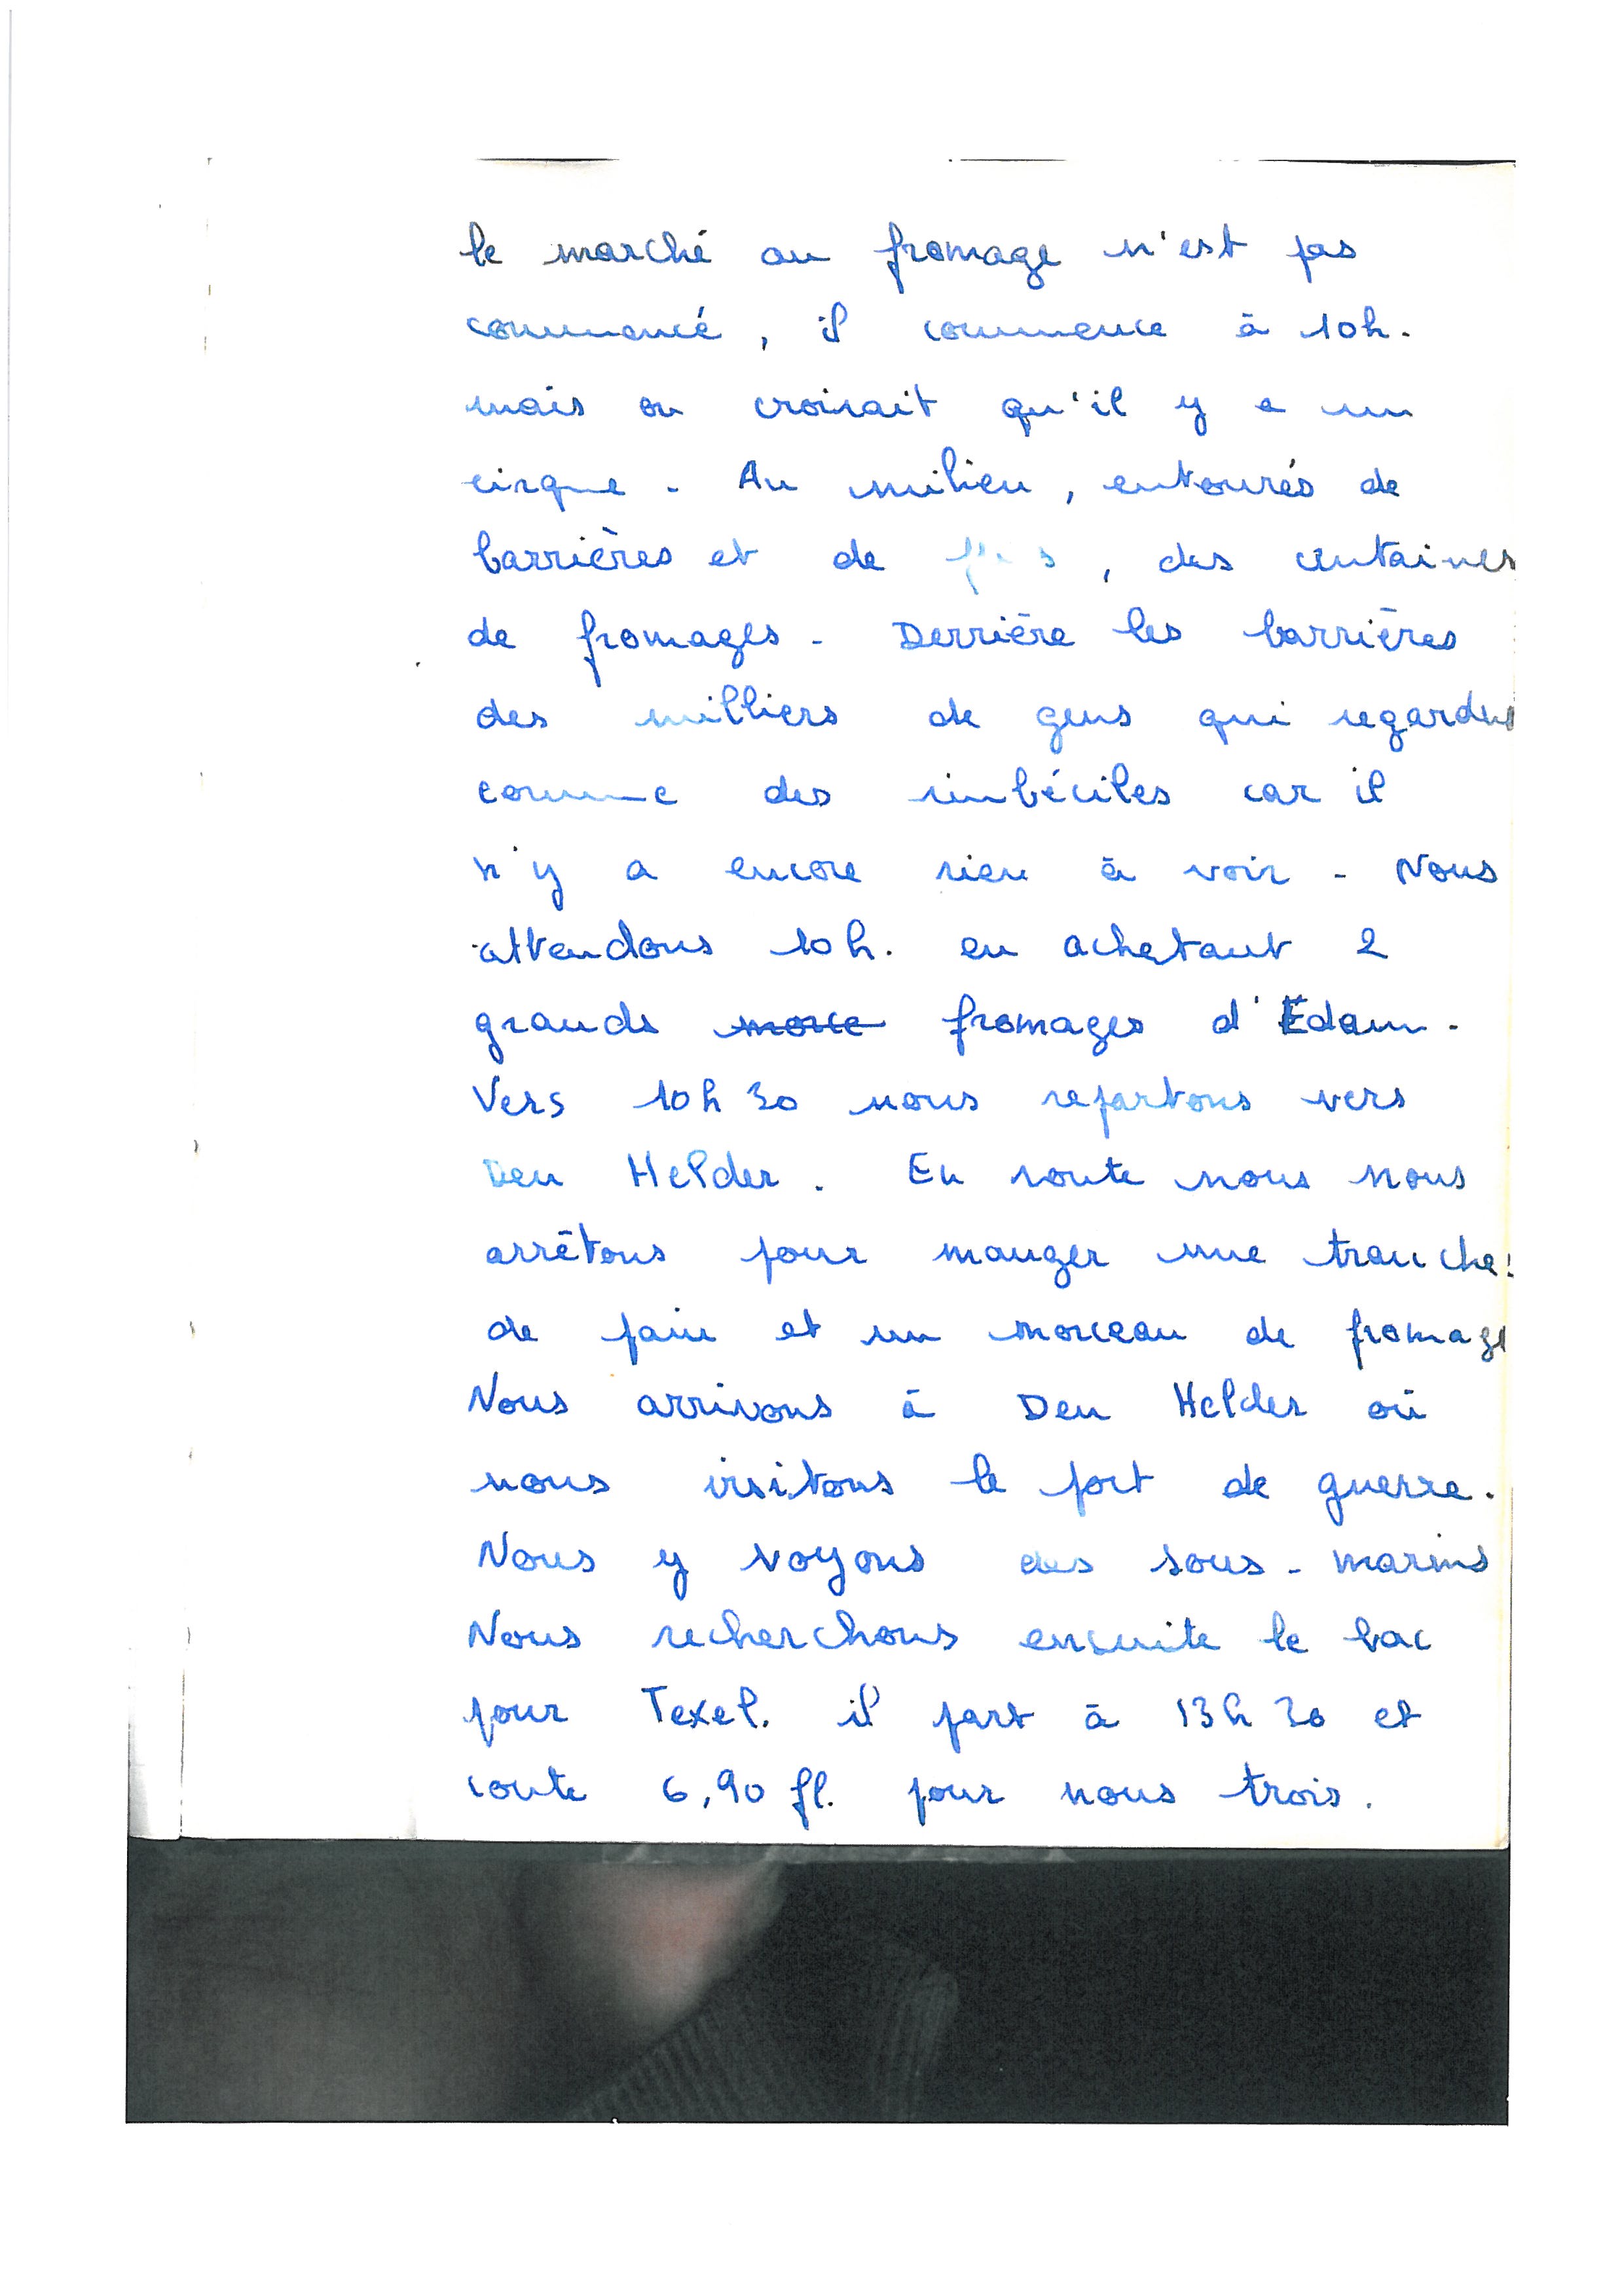 le marché au fromage n'est pas
commencé, il commence à 10h.
mais on croirait qu'il y a un
cirque. Au milieu, entourés de
barrières et de , des centaines
de fromages. Derrière les barrières
des milliers de gens qui regardent
comme des imbéciles car il
n'y a encore rien à voir. Nous
attendons 10h. en achetant 2
grands fromages d'Edam.
Vers 10h30 nous repartons vers
Den Helder. En route nous nous
arrêtons pour manger une tranche
de pain et un morceau de fromage
Nous arrivons à Den Helder où
nous visitons le port de guerre.
Nous y voyons des sous-marins
Nous recherchons ensuite le bac
pour Texel. il part à 13h30 et
coute 6,90 fl. pour nous trois.